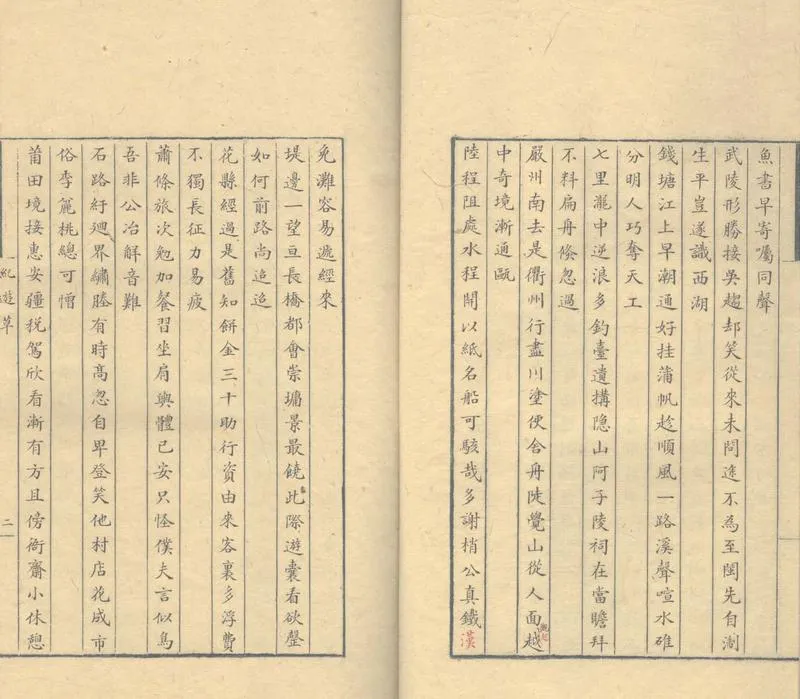 魚書早寄囑同聲
武陵形勝接吳趨却笑從來未問途不為至閩先自淛
生平豈遂識西湖
錢塘江上早潮通好挂蒲帆趁順風一路溪聲喧水碓
分明人巧奪天工
七里瀧中逆浪多釣臺遺搆隐山阿子陵祠在當瞻拜
不料扁舟倐忽過
嚴州南去是衢州行盡川塗便舍舟陡覺山從人面越
中奇境漸通甌
陸程阻處水程開以紙名船可駭哉多謝梢公真鐵漢
免灘容易遞經來
堤邊一望亘長橋都會崇墉景最饒此際遊囊看欲罄
如何前路尚迢迢
花縣經過是舊知餅金三十助行資由來客裏多浮費
不獨長征力易疲
蕭條旅次勉加餐習坐肩輿體已安只怪僕夫言似鳥
吾非公冶解音難
石路紆廻界繡塍有時髙忽自卑登笑他村店花成市
俗李麤桃總可憎
莆田境接惠安疆税駕欣看漸有方且傍衙齋小休憩
紀遊草
二